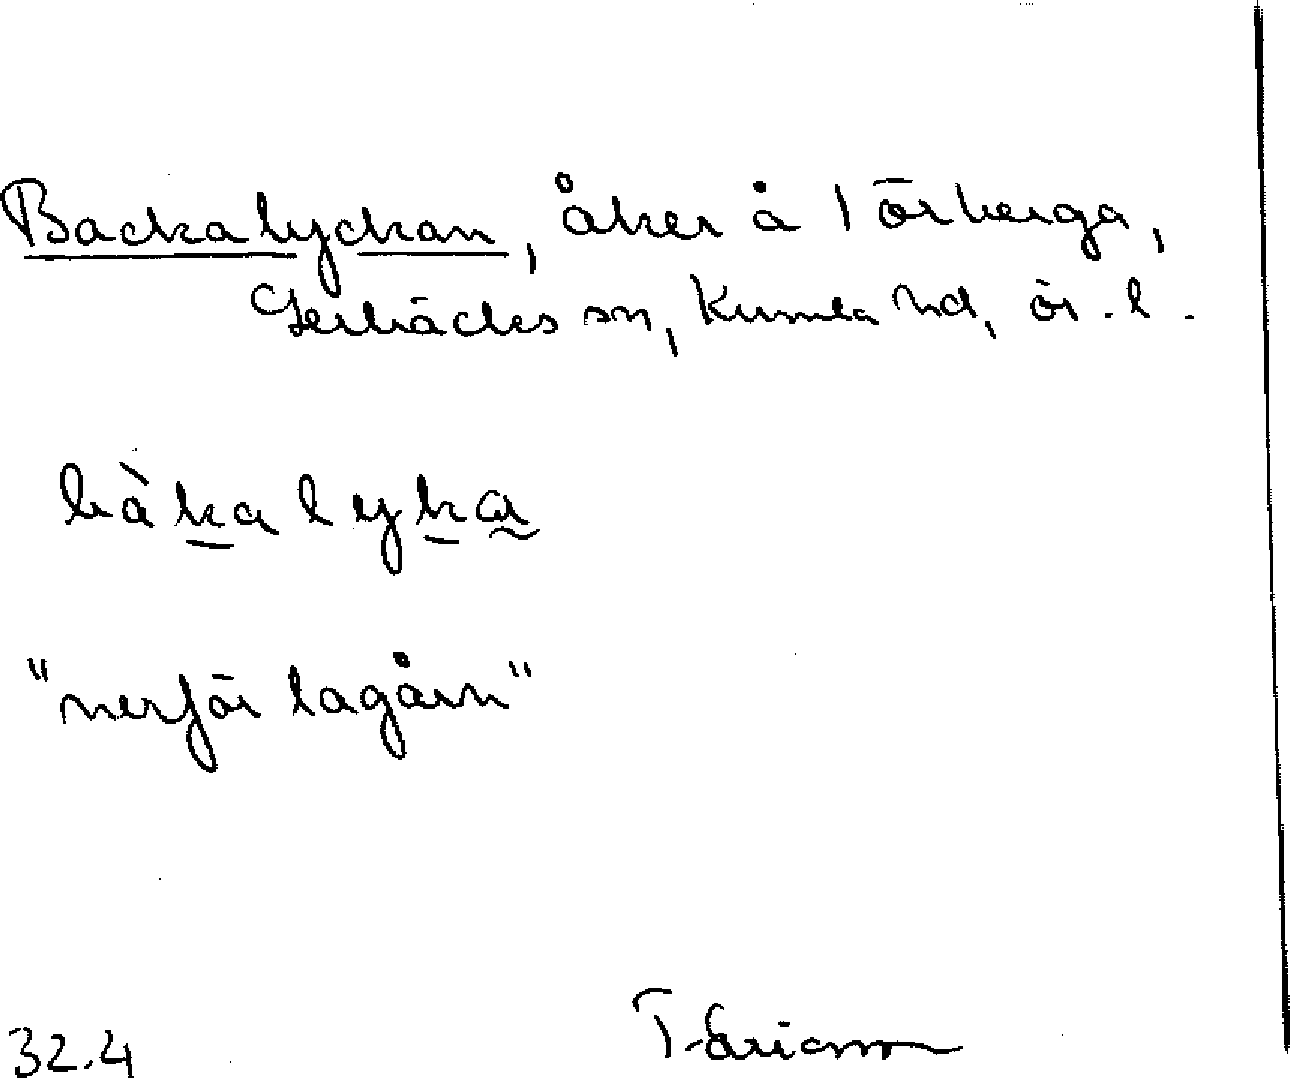 Backalyckan, åker å 1 Örberga,
Lerbäcks sn, Kumla hd, Ör. l.
bàkalyka
"nerför lagårn"
32.4
T. Ericsson